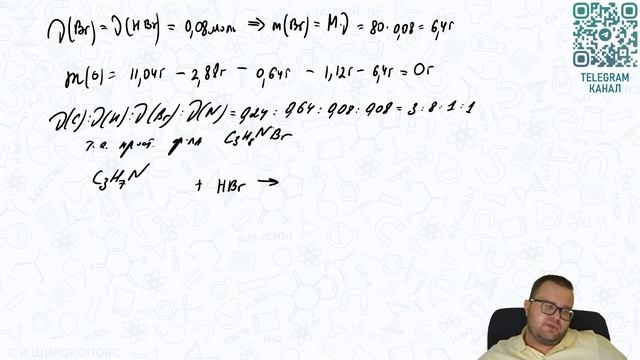 ν(Br) = ν(HBr) = 0,08 моль ⇒ m(Br) = M·ν = 80·0,08 = 6,4г
m(O) = 11,04г − 2,88г − 0,64г − 1,12г − 6,4г = 0г
ν(C):ν(H):ν(Br):ν(N) = 0,24 : 0,64 : 0,08 : 0,08 = 3:8:1:1
т.е. прост. ф-ла C₃H₈NBr
C₃H₇N + HBr →
TELEGRAM
КАНАЛ
С.И.ШИРОКОПОЯС